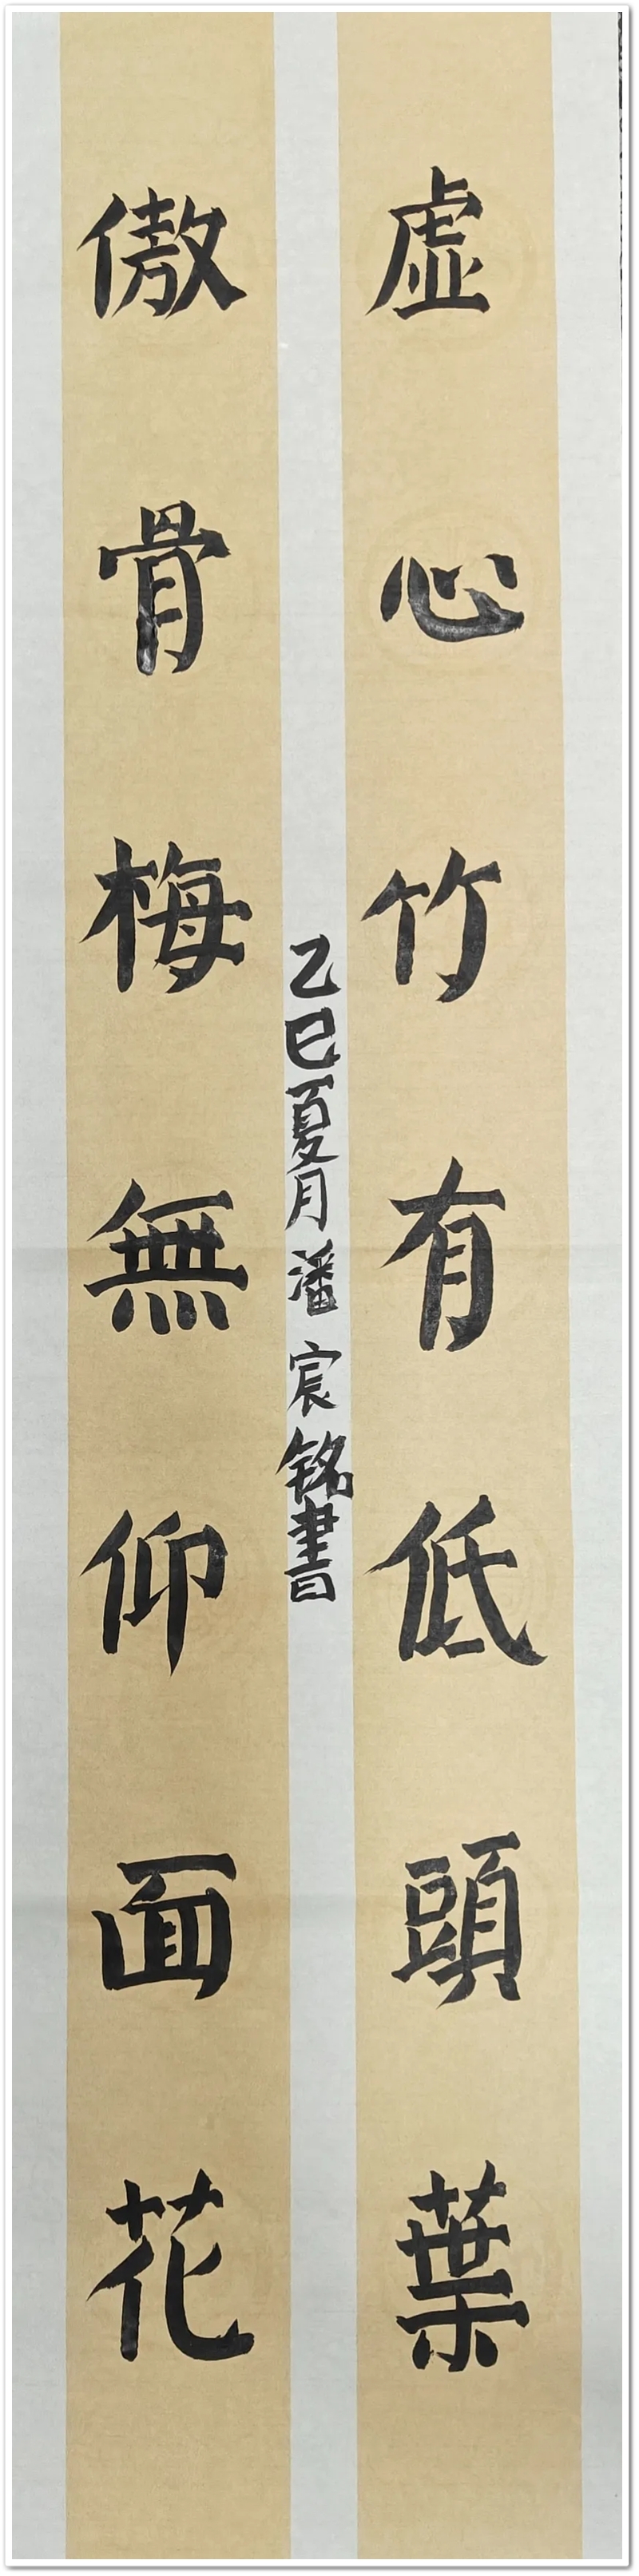 虛心竹有低頭葉
傲骨梅無仰面花
乙巳夏月潘宸铭書